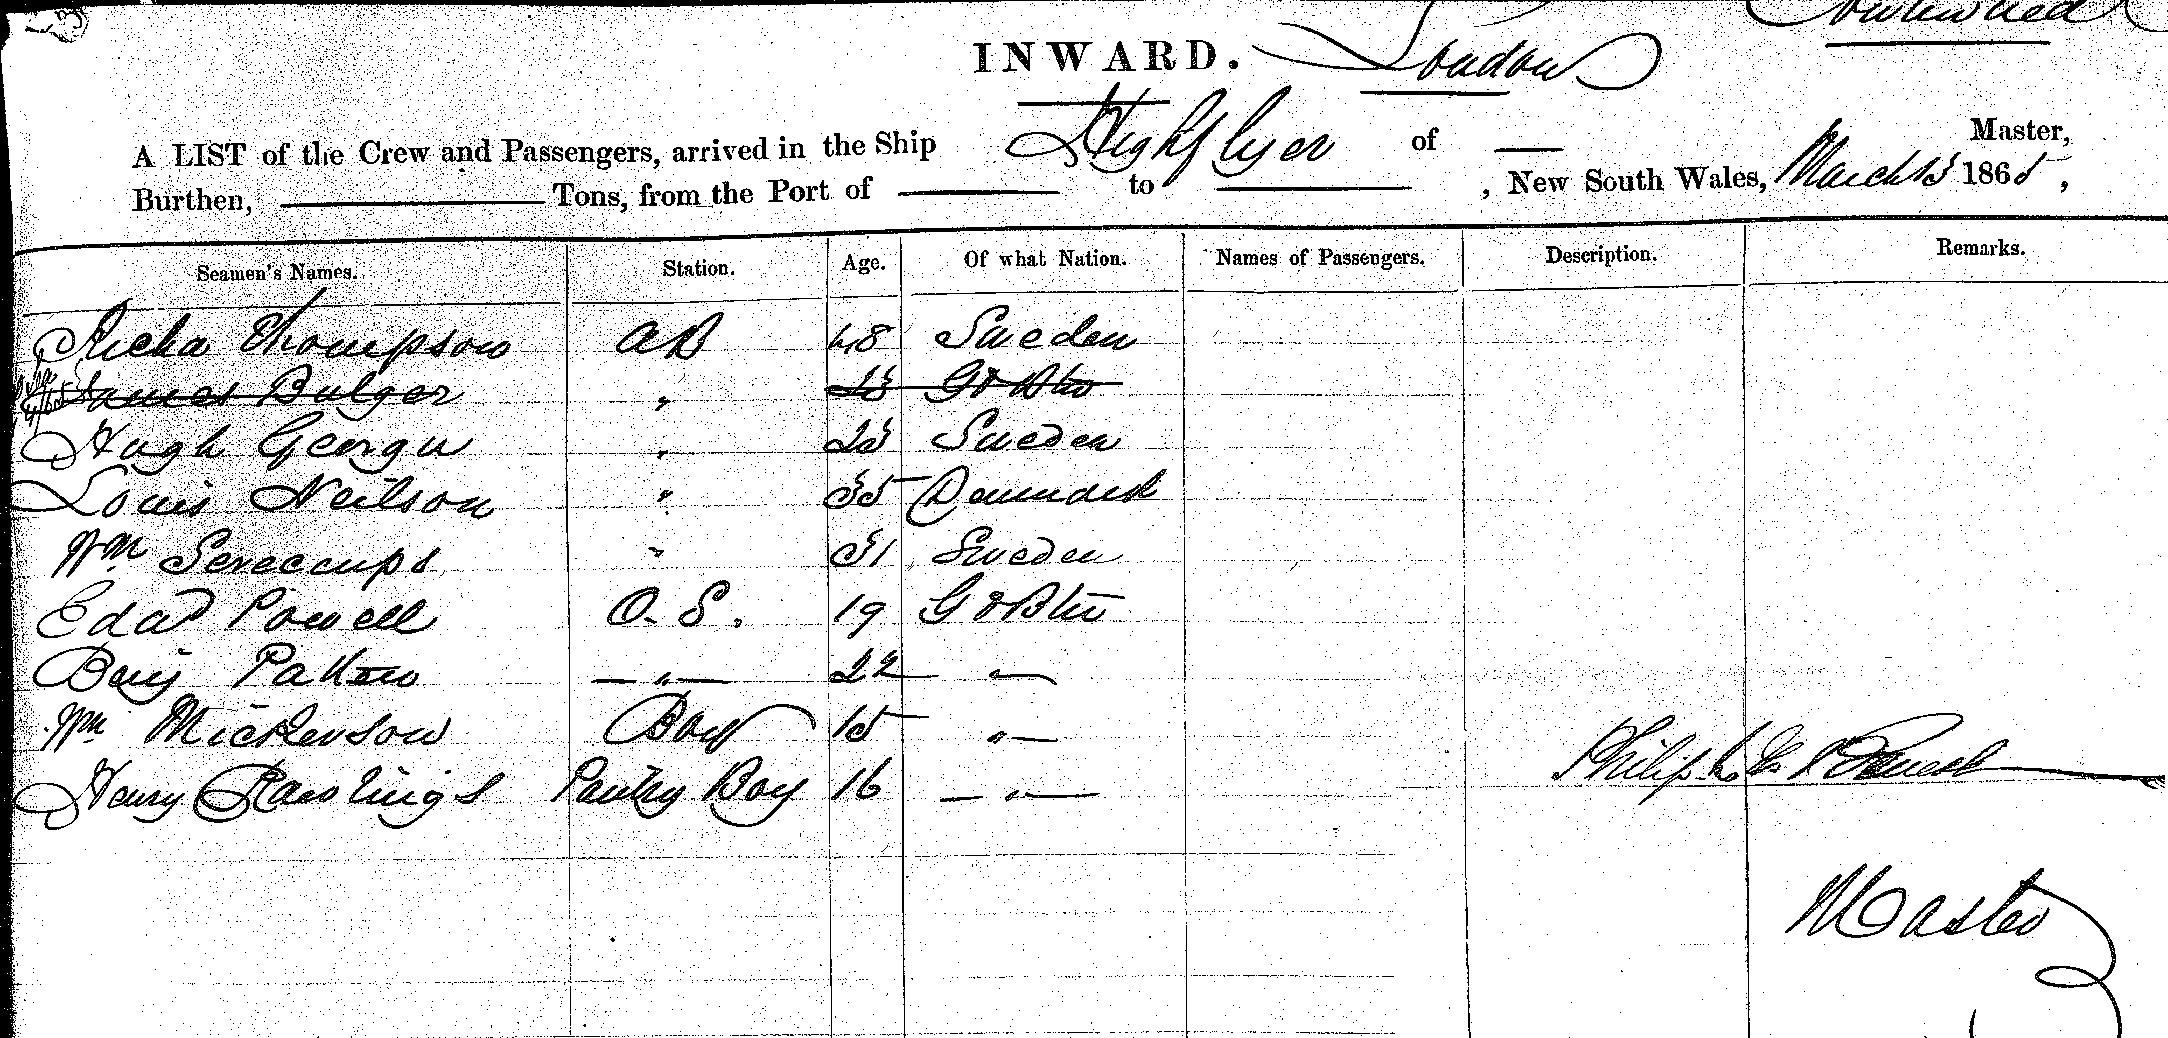 Continued
INWARD. London
A LIST of the Crew and Passengers, arrived in the Ship Highflyer of — Master,
Burthen, — Tons, from the Port of — to — , New South Wales, March 13 1865,
Seamen's Names. Station. Age. Of what Nation. Names of Passengers. Description. Remarks.
Richd Thompson AB 48 Sweden
James Bulger " 23 Gt Btn
Hugh Georgu " 23 Sweden
Louis Neilson " 35 Denmark
Wm " 31 Sweden
Edwd Powell O.S. 19 Gt Btn
Benj Patten — " — 22 "
Wm Mickenson Boy 15 " —
Henry Rawlings Pantry Boy 16 — " —
Philip
Master